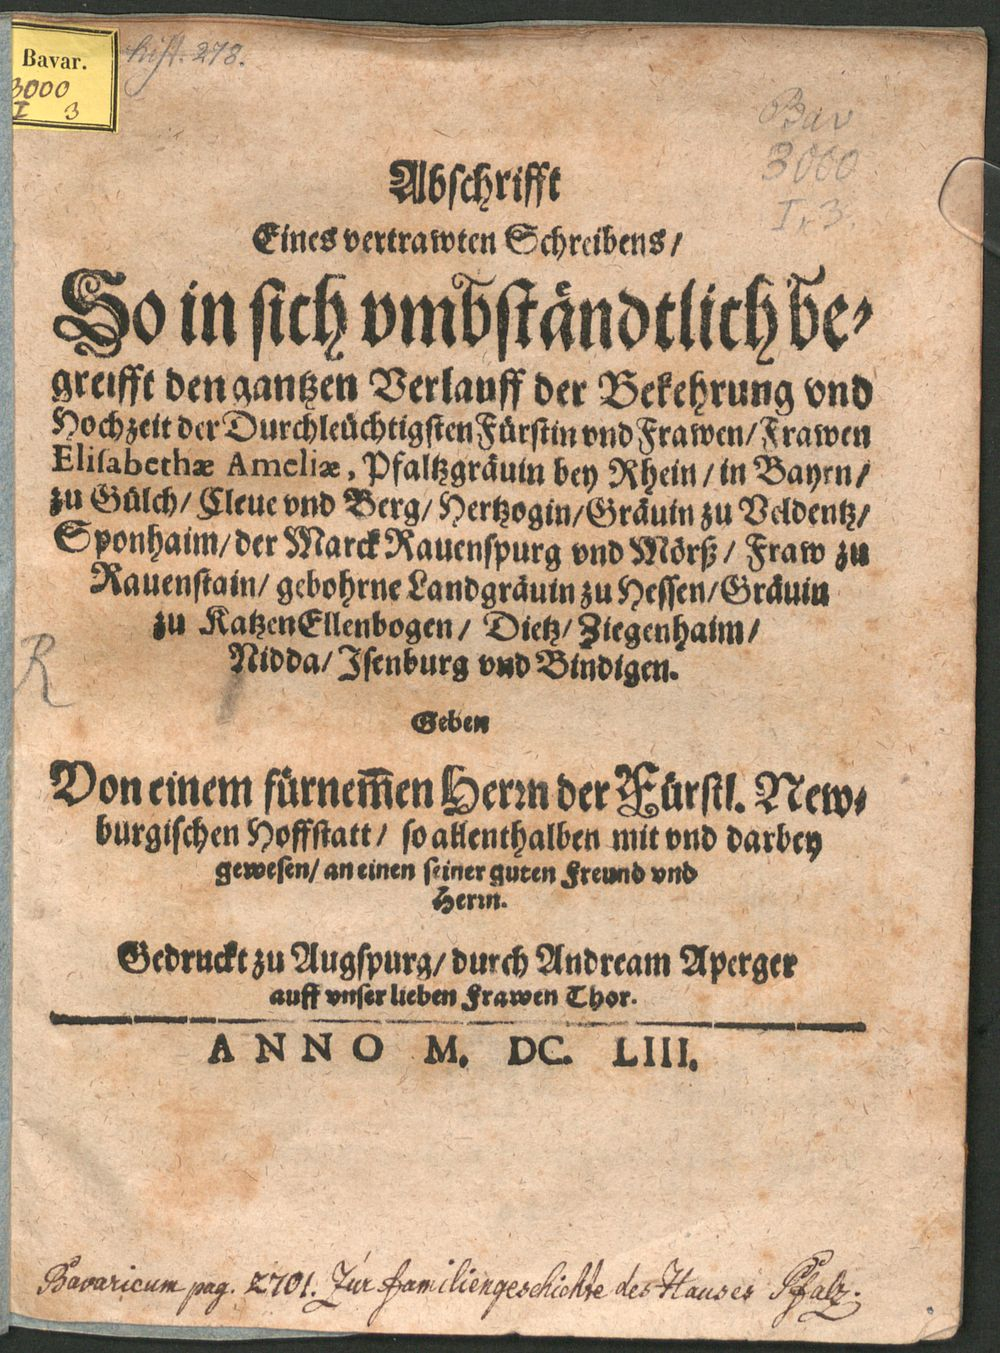 Bavar.
3000
I 3
hist. 278.
Bav
3000
I, 3.
Abschrifft
Eines vertrawten Schreibens/
So in sich vmbständtlich be-
greifft den gantzen Verlauff der Bekehrung vnd
Hochzeit der Durchleüchtigsten Fürstin vnd Frawen/ Frawen
Elisabethæ Ameliæ, Pfaltzgräuin bey Rhein/ in Bayrn/
zu Gülch/ Cleue vnd Berg/ Hertzogin/ Gräuin zu Veldentz/
Sponhaim/ der Marck Rauenspurg vnd Mörß/ Fraw zu
Rauenstain/ gebohrne Landgräuin zu Hessen/ Gräuin
zu KatzenEllenbogen/ Dietz/ Ziegenhaim/
Nidda/ Isenburg vnd Bindigen.
Geben
Von einem fürnem̅en Herrn der Fürstl. New-
burgischen Hoffstatt/ so allenthalben mit vnd darbey
gewesen/ an einen seiner guten Freund vnd
Herrn.
Gedruckt zu Augspurg/ durch Andream Aperger
auff vnser lieben Frawen Thor.
ANNO M. DC. LIII.
R
Bavaricum pag. 2701. Zur Familiengeschichte des Hauses Pfalz.